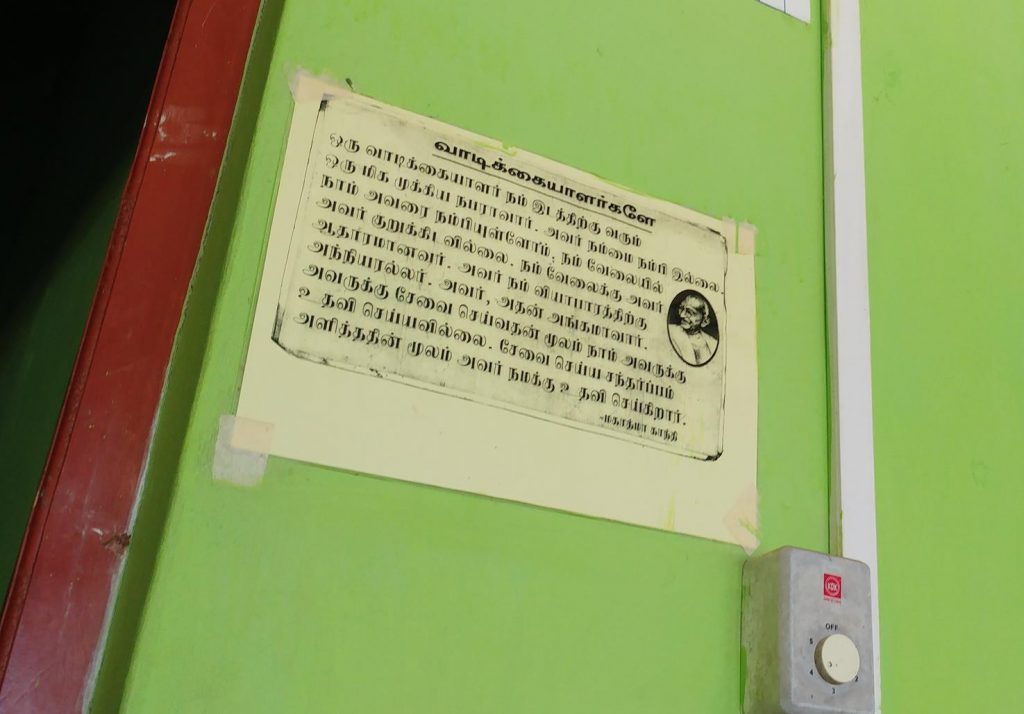 வாடிக்கையாளர்களே
ஒரு வாடிக்கையாளர் நம் இடத்திற்கு வரும்
ஒரு மிக முக்கிய நபராவார். அவர் நம்மை நம்பி இல்லை.
நாம் அவரை நம்பியுள்ளோம். நம் வேலையில்
அவர் குறுக்கிட வில்லை. நம் வேலைக்கு அவர்
ஆதாரமானவர். அவர் நம் வியாபாரத்திற்கு
அந்நியரல்லர். அவர், அதன் அங்கமாவார்.
அவருக்கு சேவை செய்வதன் மூலம் நாம் அவருக்கு
உ தவி செய்யவில்லை. சேவை செய்ய சந்தர்ப்பம்
அளித்ததின் மூலம் அவர் நமக்கு உ தவி செய்கிறார்.
-மகாத்மா காந்தி
KDK
OFF
5
4
3
2